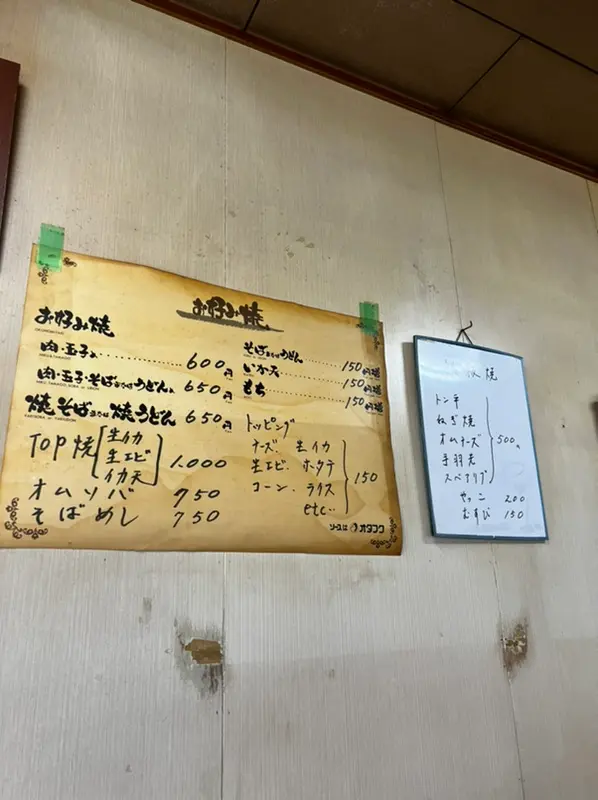 お好み焼
お好み焼
肉・玉子入 600円
肉・玉子・そばまたはうどん入 650円
焼そばまたは焼うどん 650円
TOP焼 生イカ 生エビ イカ天 1.000
オムソバ 750
そばめし 750
そばまたはうどん 150円増
いか天 150円増
もち 150円増
トッピング
チーズ. 生イカ
生エビ. ホタテ
コーン. ライス
etc.. 150
ソースは オタフク
焼
トン平
ねぎ焼
オムチーズ
手羽先
スペアリブ
500円
やっこ 200
むすび 150